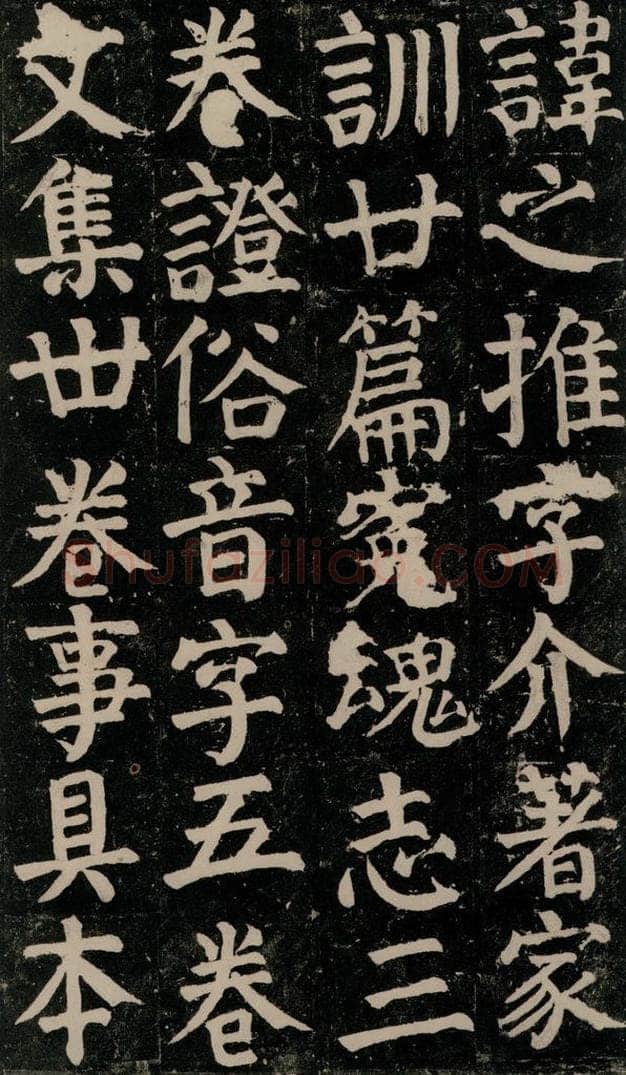 諱之推字介著家
訓廿篇寃魂志三
卷證俗音字五卷
文集丗卷事具本
Shufaziliao.COM